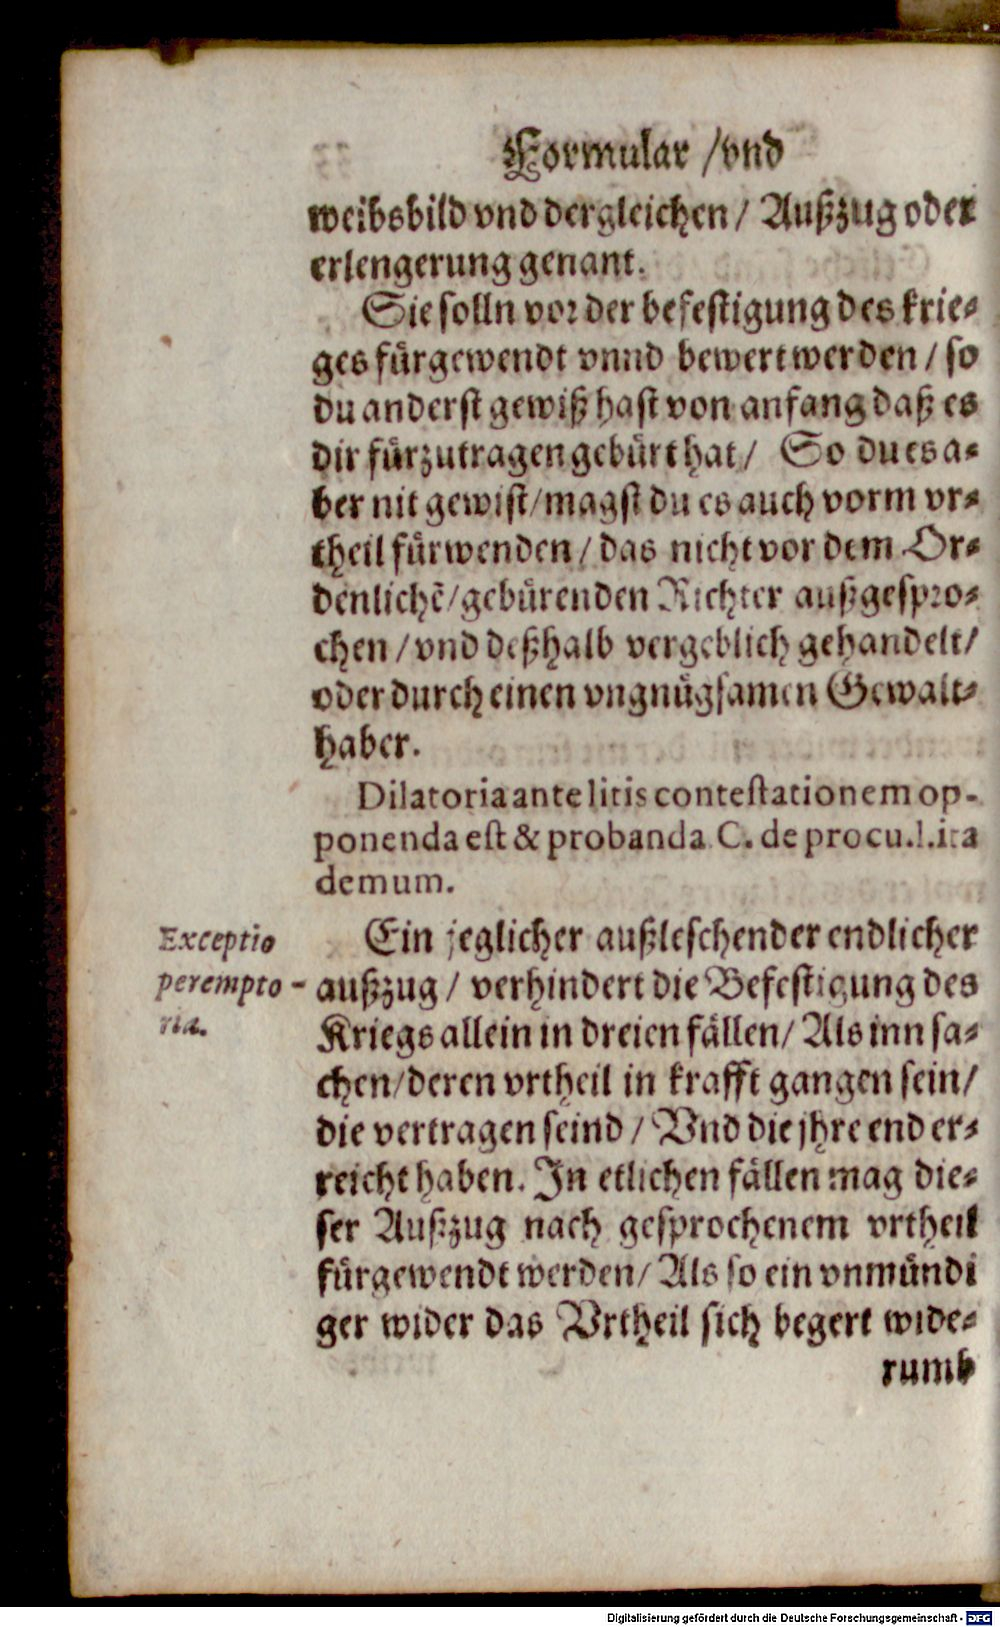 Formular /vnd
weibsbild vnd dergleichen / Außzug oder
erlengerung genant.
Sie solln vor der befestigung des krie-
ges fürgewendt vnnd bewert werden / so
du anderst gewiß hast von anfang daß es
dir fürzutragen gebürt hat / So du es a-
ber nit gewist / magst du es auch vorm vr-
theil fürwenden / das nicht vor dem Or-
denlichẽ / gebürenden Richter außgespro-
chen / vnd deßhalb vergeblich gehandelt /
oder durch einen vngnügsamen Gewalt-
haber.
Dilatoria ante litis contestationem op-
ponenda est & probanda C. de procu. l. ita
demum.
Exceptio
perempto-
ria.
Ein jeglicher außleschender endlicher
außzug / verhindert die Befestigung des
Kriegs allein in dreien fällen / Als inn sa-
chen / deren vrtheil in krafft gangen sein /
die vertragen seind / Vnd die jhre end er-
reicht haben. In etlichen fällen mag die-
ser Außzug nach gesprochenem vrtheil
fürgewendt werden / Als so ein vnmündi
ger wider das Vrtheil sich begert wide-
rumb
Digitalisierung gefördert durch die Deutsche Forschungsgemeinschaft - DFG